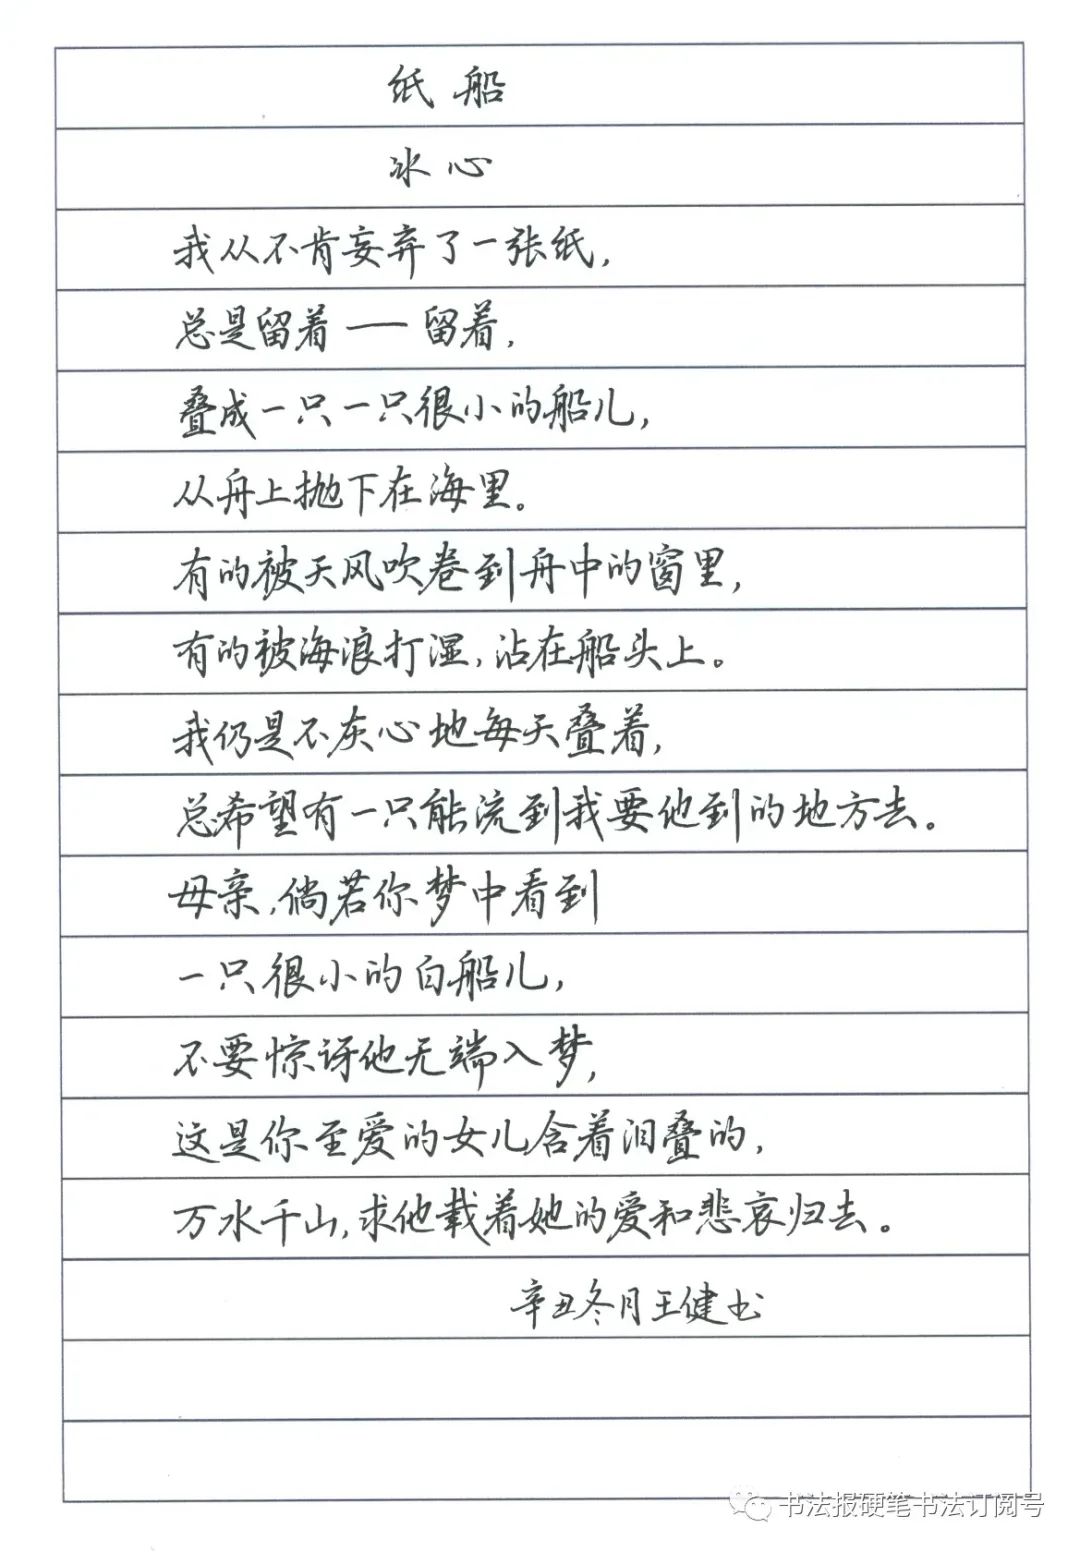 纸船
冰心
我从不肯妄弃了一张纸，
总是留着——留着，
叠成一只一只很小的船儿，
从舟上抛下在海里。
有的被天风吹卷到舟中的窗里，
有的被海浪打湿，沾在船头上。
我仍是不灰心地每天叠着，
总希望有一只能流到我要他到的地方去。
母亲，倘若你梦中看到
一只很小的白船儿，
不要惊讶他无端入梦，
这是你至爱的女儿含着泪叠的，
万水千山，求他载着她的爱和悲哀归去。
辛丑冬月王健书
书法报硬笔书法订阅号